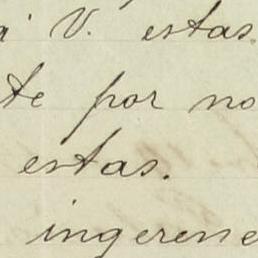 a V. estas
te por no
estas.
ingeren